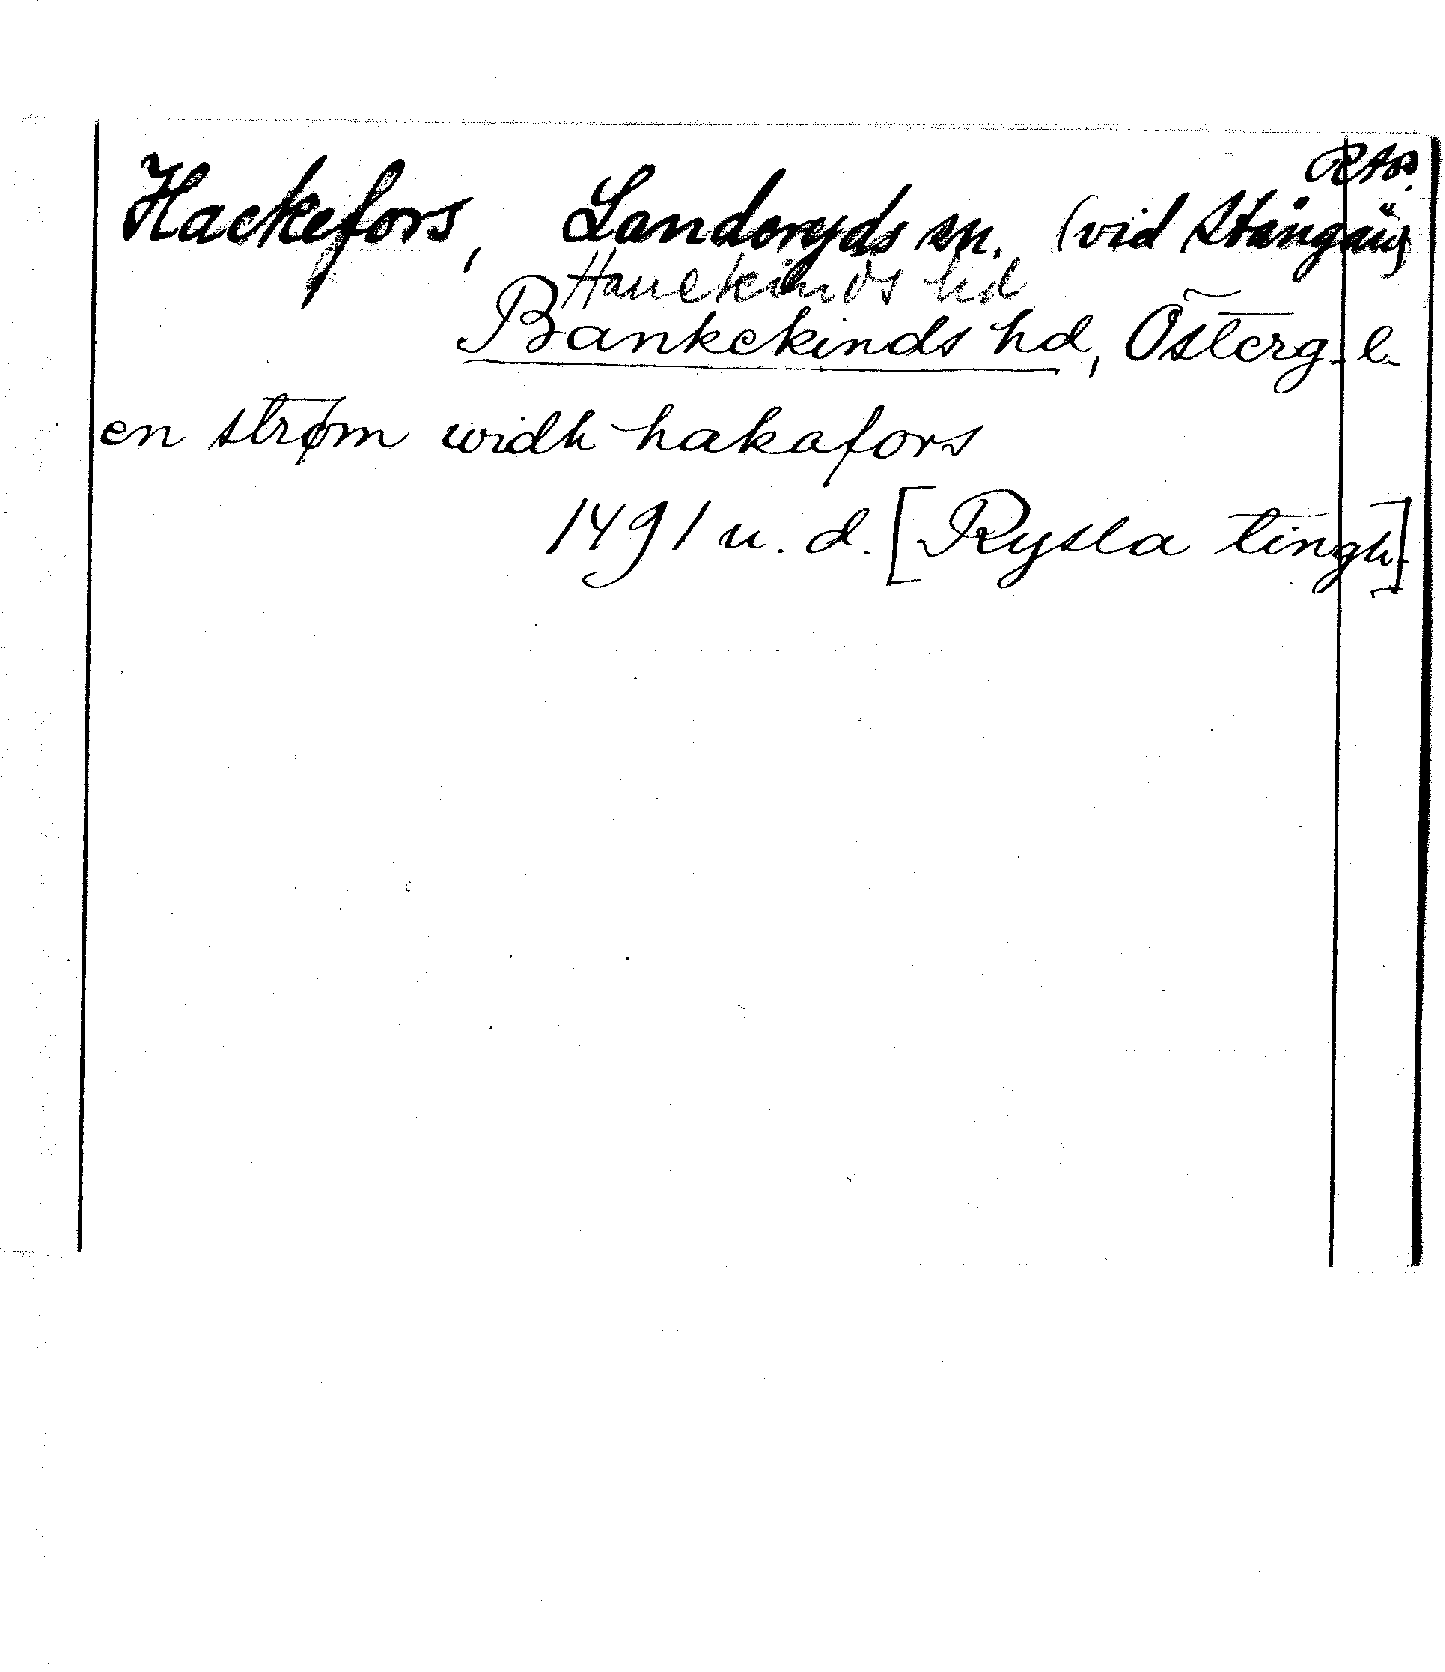 RAp.
Hackefors, Landeryds sn. (vid Stångån)
Hanekinds hd
Bankekinds hd, Österg. l.
en strøm widh hakafors
1491 u. d. [Rysta tingh]